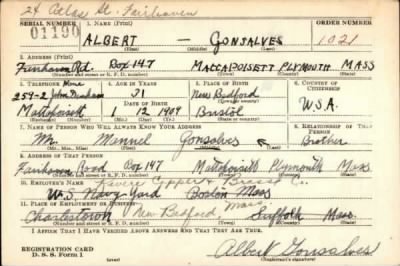 24 Cedar St. Fairhaven
SERIAL NUMBER 1. NAME (Print) ORDER NUMBER
01190 ALBERT — GONSALVES 1021
(First) (Middle) (Last)
2. ADDRESS (Print)
Fairhaven Rd. Box 147 MATTAPOISETT PLYMOUTH MASS
(Number and street or R. F. D. number) (Town) (County) (State)
3. TELEPHONE 4. AGE IN YEARS 5. PLACE OF BIRTH 6. COUNTRY OF CITIZENSHIP
31 New Bedford
DATE OF BIRTH (Town or county)
Mattapoisett 12 1909 Bristol U.S.A.
(Exchange) (Number) (Mo.) (Day) (Yr.) (State or country)
7. NAME OF PERSON WHO WILL ALWAYS KNOW YOUR ADDRESS 8. RELATIONSHIP OF THAT PERSON
Mr. Manuel Gonsalves Brother
(Mr., Mrs., Miss) (First) (Middle) (Last)
9. ADDRESS OF THAT PERSON
Fairhaven Road Box 147 Mattapoisett Plymouth Mass
(Number and street or R. F. D. number) (Town) (County) (State)
10. EMPLOYER'S NAME Revere Copper & Brass Co.
U.S. Navy Yard Boston Mass
11. PLACE OF EMPLOYMENT OR BUSINESS
Charlestown New Bedford, Mass Suffolk Mass.
(Number and street or R. F. D. number) (Town) (County) (State)
I AFFIRM THAT I HAVE VERIFIED ABOVE ANSWERS AND THAT THEY ARE TRUE.
REGISTRATION CARD
D. S. S. Form 1 (over) Albert Gonsalves
(Registrant's signature)